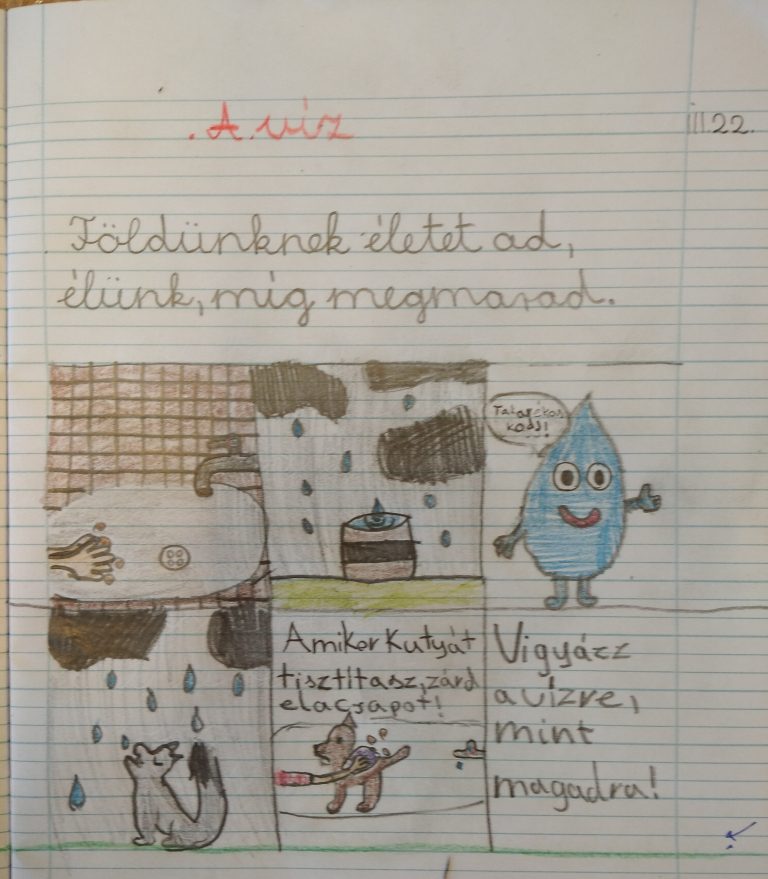 .A víz
III.22.
Földünknek életet ad,
élünk, míg megmarad.
Takarékos
kodj!
Amikor kutyát
tisztítasz, zárd
el a csapot!
Vigyázz
a vízre,
mint
magadra!